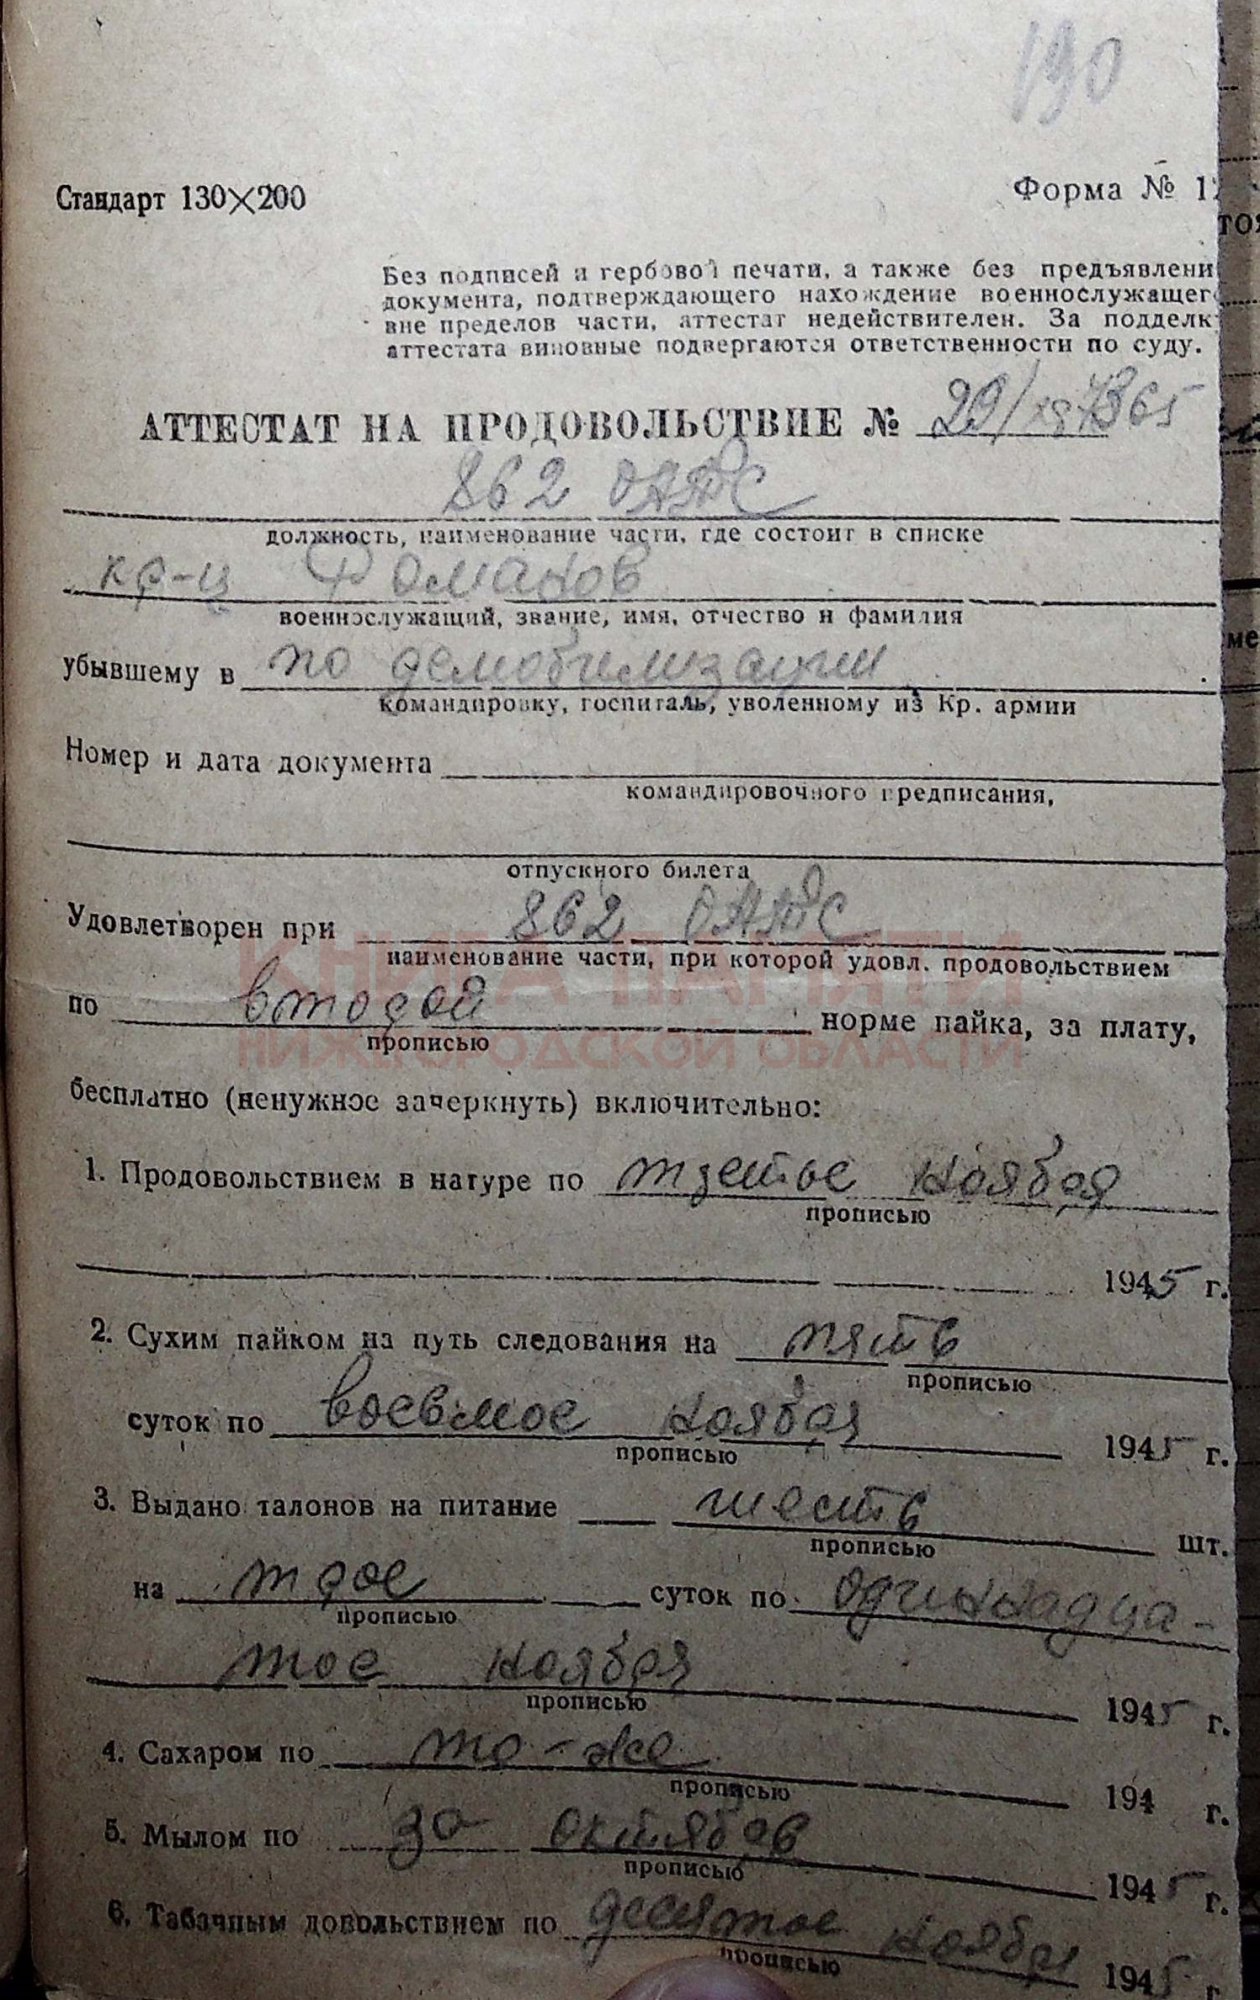 190
Стандарт 130×200
Форма № 12
Без подписей и гербовой печати, а также без предъявлени
документа, подтверждающего нахождение военнослужащег
вне пределов части, аттестат недействителен. За подделк
аттестата виновные подвергаются ответственности по суду.
АТТЕСТАТ НА ПРОДОВОЛЬСТВИЕ № 29/
862
должность, наименование части, где состоит в списке
кр-ц Фоманов
военнослужащий, звание, имя, отчество и фамилия
убывшему в по демобилизации
командировку, госпиталь, уволенному из Кр. армии
Номер и дата документа
командировочного предписания,
отпускного билета
Удовлетворен при 862
наименование части, при которой удовл. продовольствием
КНИГА ПАМЯТИ
по второй норме пайка, за плату,
прописью
НИЖЕГОРОДСКОЙ ОБЛАСТИ
бесплатно (ненужное зачеркнуть) включительно:
1. Продовольствием в натуре по третье ноября
прописью
1945 г.
2. Сухим пайком на путь следования на пять
прописью
суток по восьмое ноября 1945 г.
прописью
3. Выдано талонов на питание шесть шт.
прописью
на трое суток по одиннадца-
прописью
тое ноября 1945 г.
прописью
4. Сахаром по то-же 194 г.
прописью
5. Мылом по за октябрь 1945 г.
прописью
6. Табачным довольствием по десятое ноября 1945 г
прописью